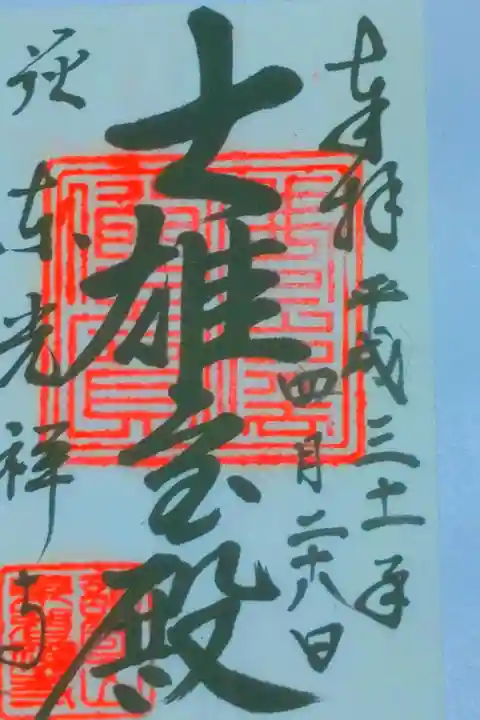 奉拝 平成三十一年
四月二十八日
大雄宝殿
東光禅寺